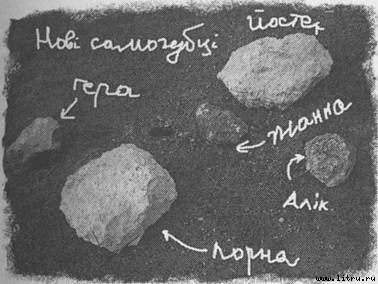 Нові самогубці
Йостек
гера
Жанна
Алік
Лорна
www.litru.ru